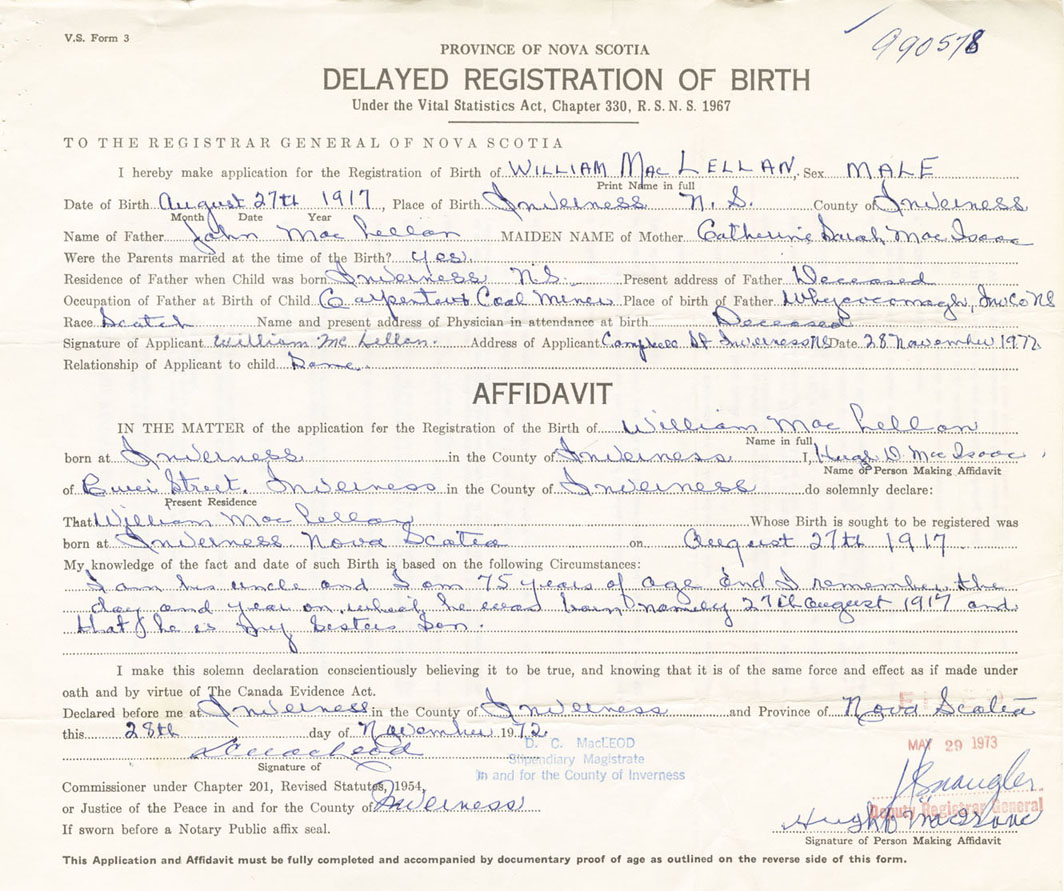 V.S. Form 3
990578
PROVINCE OF NOVA SCOTIA
DELAYED REGISTRATION OF BIRTH
Under the Vital Statistics Act, Chapter 330, R. S. N. S. 1967
TO THE REGISTRAR GENERAL OF NOVA SCOTIA
I hereby make application for the Registration of Birth of WILLIAM MacLELLAN, Sex MALE
Print Name in full
Date of Birth August 27th 1917, Place of Birth Inverness N. S. County of Inverness
Month Date Year
Name of Father John MacLellan MAIDEN NAME of Mother Catherine Sarah MacIsaac
Were the Parents married at the time of the Birth? yes.
Residence of Father when Child was born Inverness N.S. Present address of Father Deceased
Occupation of Father at Birth of Child Carpenter & Coal Miner Place of birth of Father Whycocomagh, Inv Co NS
Race Scotch Name and present address of Physician in attendance at birth Deceased
Signature of Applicant William McLellan. Address of Applicant Campbell St Inverness NS Date 28 November 1972
Relationship of Applicant to child Same.
AFFIDAVIT
IN THE MATTER of the application for the Registration of the Birth of William MacLellan
Name in full
born at Inverness in the County of Inverness I, Hugh D MacIsaac,
Name of Person Making Affidavit
of Street. Inverness in the County of Inverness do solemnly declare:
Present Residence
That William MacLellan Whose Birth is sought to be registered was
born at Inverness Nova Scotia on August 27th 1917.
My knowledge of the fact and date of such Birth is based on the following Circumstances:
I am his uncle and I am 75 years of age and I remember the
day and year on which he was born, namely 27th August 1917 and
that he is my Sisters Son.
I make this solemn declaration conscientiously believing it to be true, and knowing that it is of the same force and effect as if made under
oath and by virtue of The Canada Evidence Act.
Declared before me at Inverness in the County of Inverness and Province of Nova Scotia
this 28th day of November 1972
D. C. MacLEOD
Stipendiary Magistrate
In and for the County of Inverness
MAY 29 1973
DC MacLeod
Signature of
Commissioner under Chapter 201, Revised Statutes, 1954,
or Justice of the Peace in and for the County of Inverness
Deputy Registrar General
If sworn before a Notary Public affix seal.
Hugh D MacIsaac
Signature of Person Making Affidavit
This Application and Affidavit must be fully completed and accompanied by documentary proof of age as outlined on the reverse side of this form.